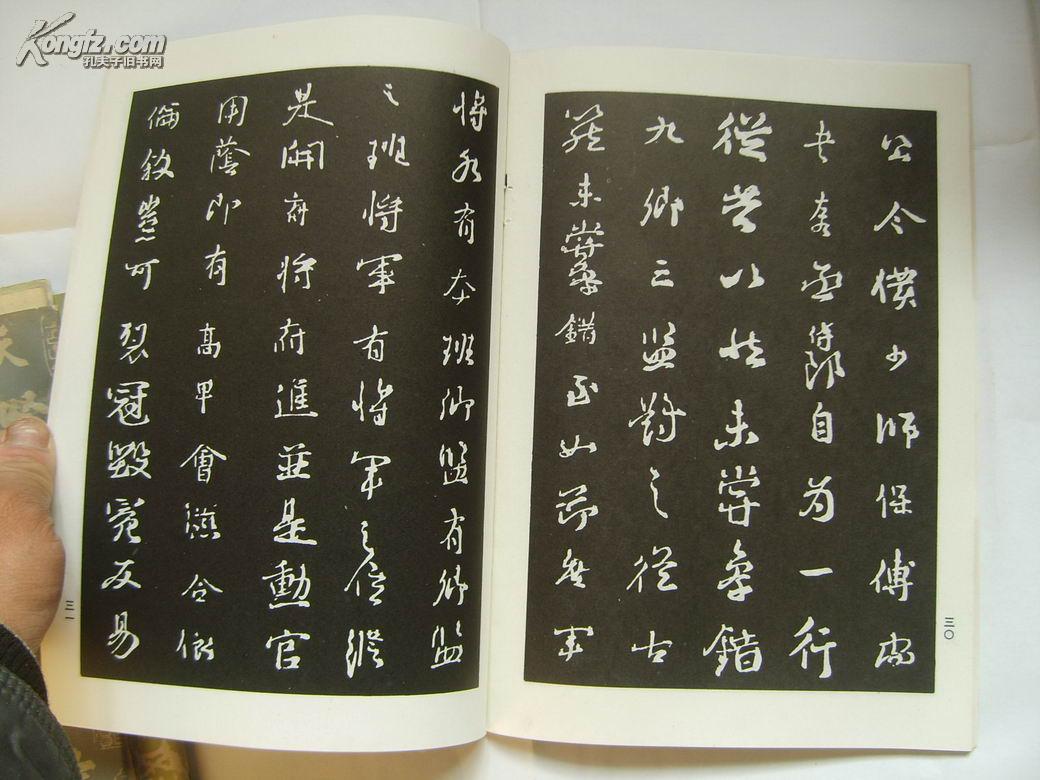 公令僕少師保傅尚
書左右丞侍郎自为一行
從昔以然未嘗參錯
九卿三監對之從古
然未嘗參錯至如節度軍
將各有本班卿監有卿監
之班將軍有將軍之位縱
是開府將府進並是勳官
用蔭即有高卑會讌合依
倫敘豈可裂冠毀冕反易
三〇
三一
Kongfz.com
孔夫子旧书网